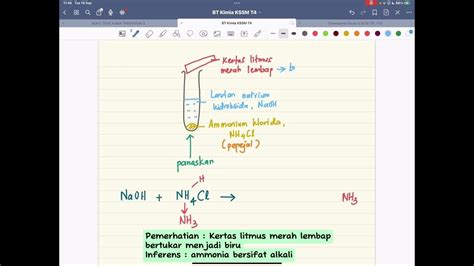 BT Kimia KSSM T4
Kertas litmus
merah lembap → b
Larutan natrium
hidroksida, NaOH
Ammonium klorida,
NH4Cl
(pepejal)
panaskan
H
NaOH + NH4Cl → NH3
NH3
Pemerhatian : Kertas litmus merah lembap
bertukar menjadi biru
Inferens : ammonia bersifat alkali